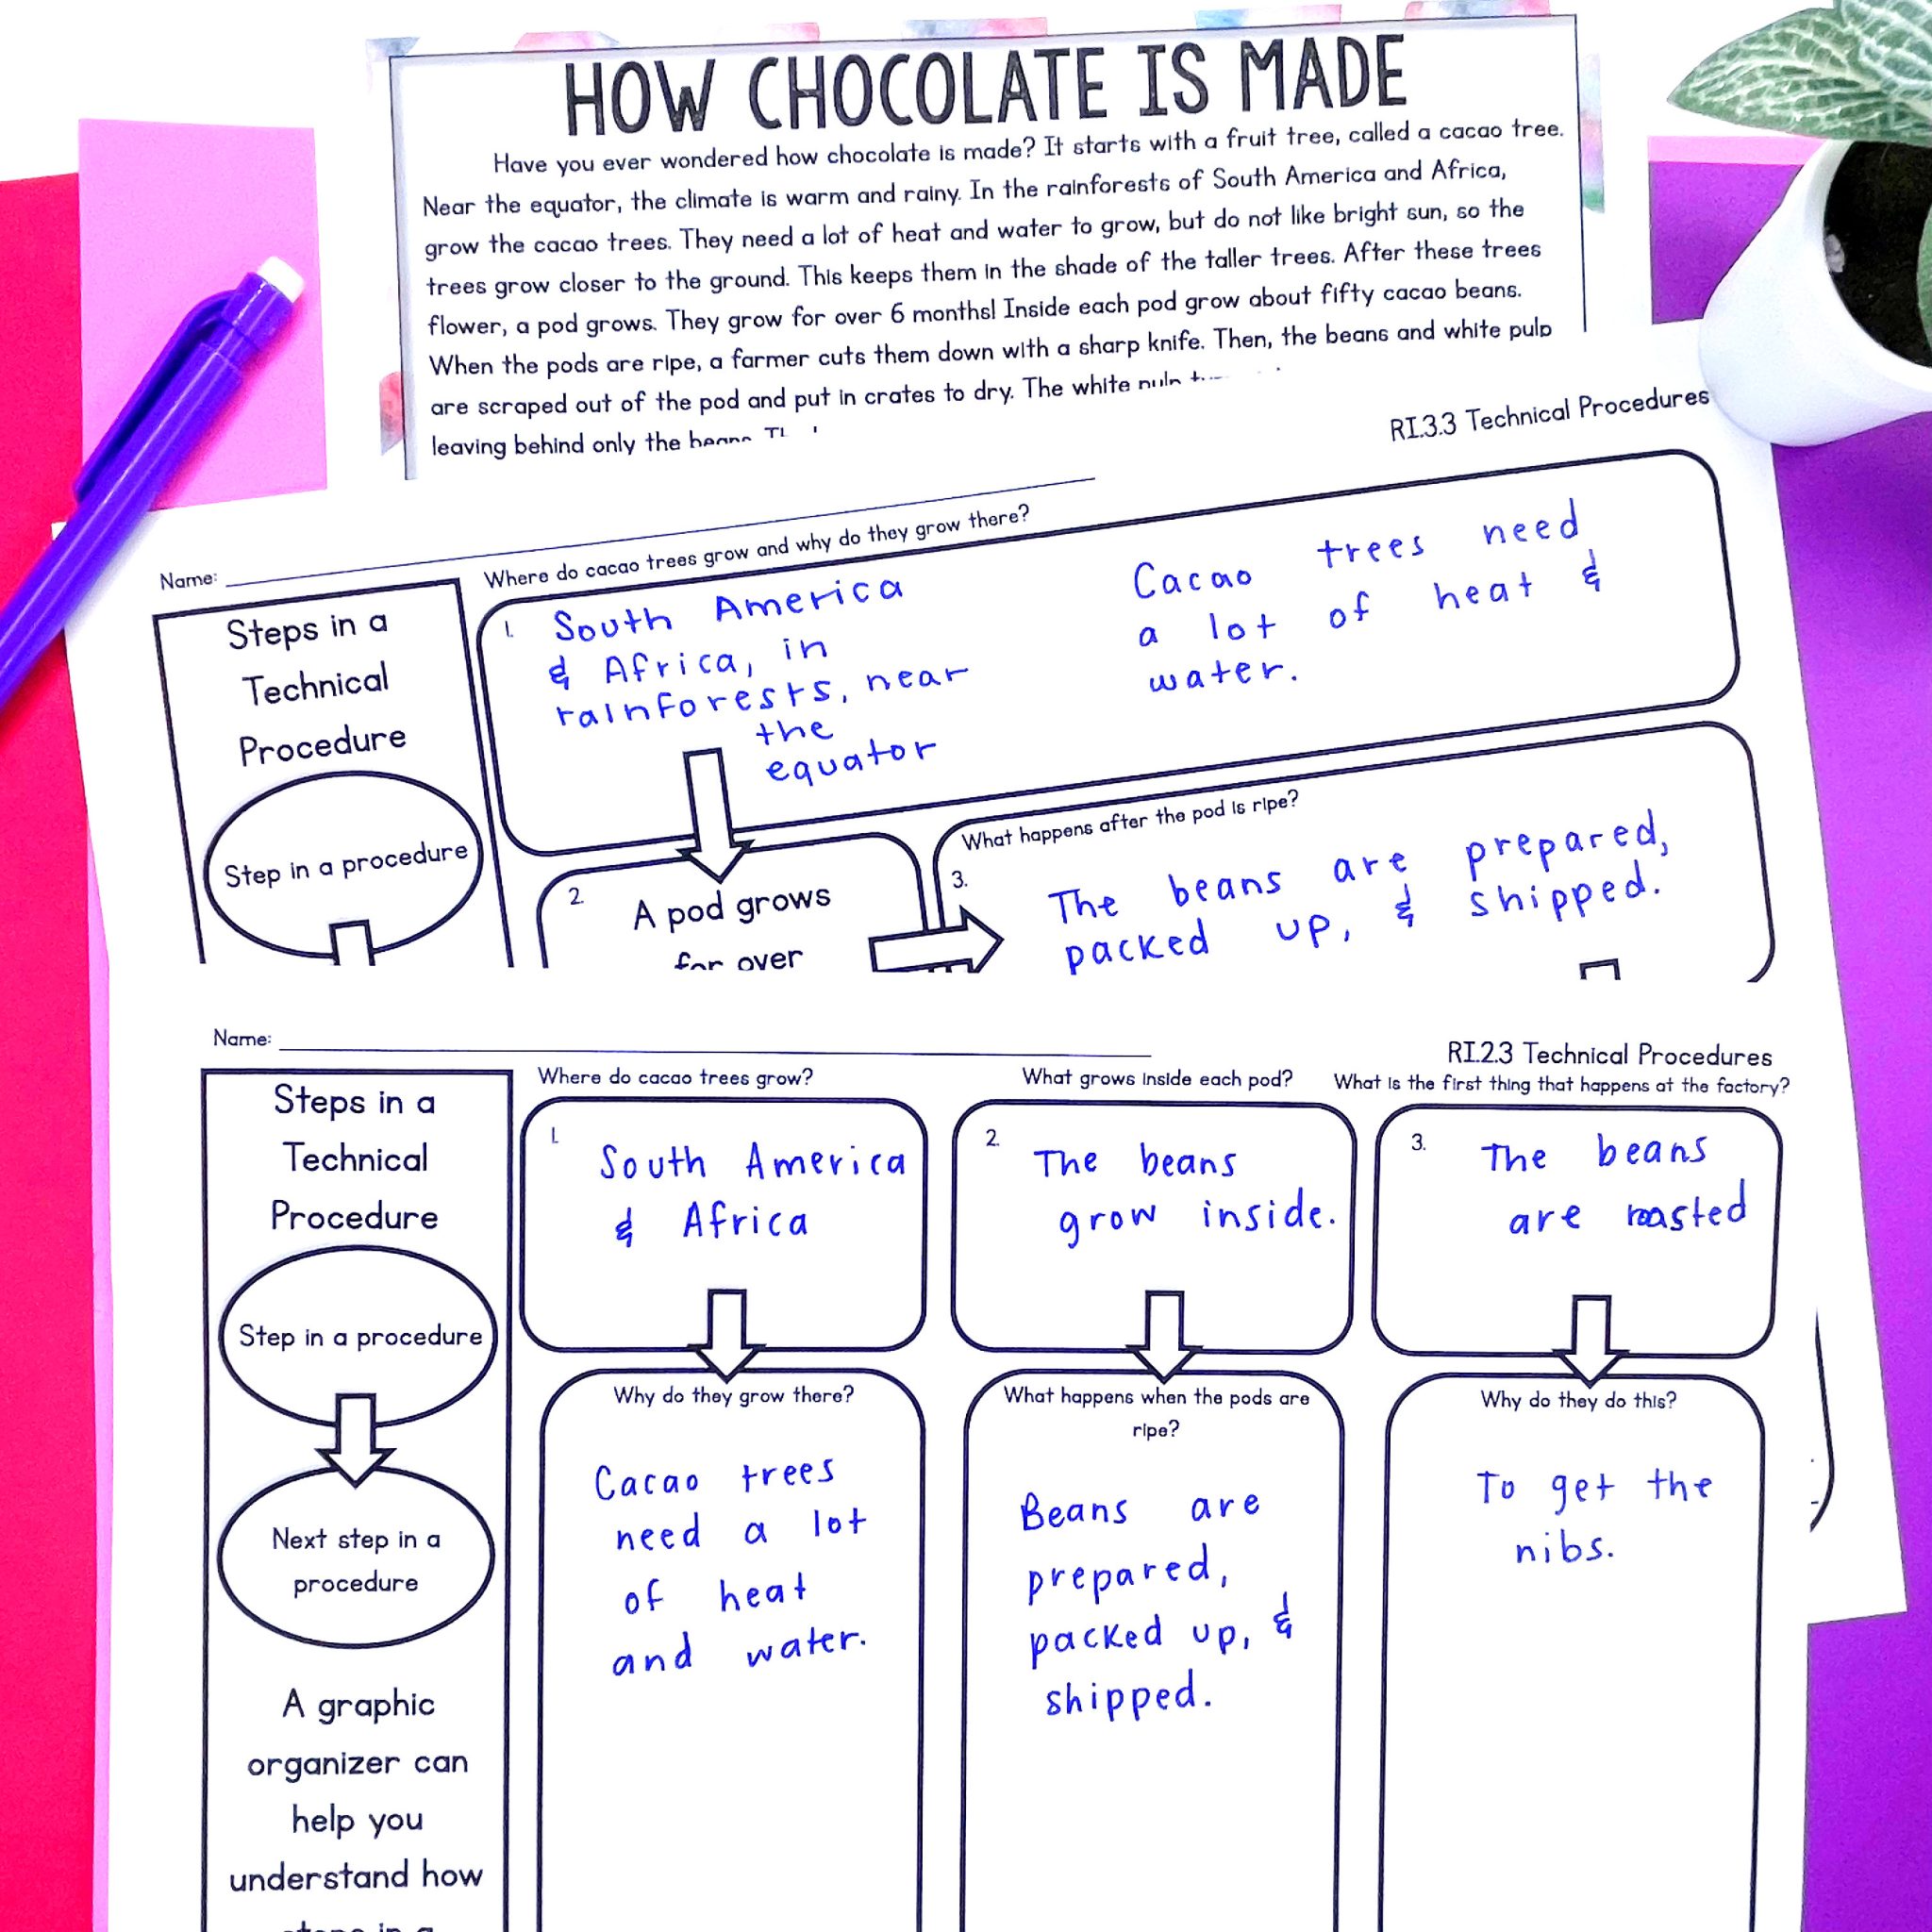 HOW CHOCOLATE IS MADE
Have you ever wondered how chocolate is made? It starts with a fruit tree, called a cacao tree.
Near the equator, the climate is warm and rainy. In the rainforests of South America and Africa,
grow the cacao trees. They need a lot of heat and water to grow, but do not like bright sun, so the
trees grow closer to the ground. This keeps them in the shade of the taller trees. After these trees
flower, a pod grows. They grow for over 6 months! Inside each pod grow about fifty cacao beans.
When the pods are ripe, a farmer cuts them down with a sharp knife. Then, the beans and white pulp
are scraped out of the pod and put in crates to dry. The white pulp
leaving behind only the beans
RI.3.3 Technical Procedures
Name:
Where do cacao trees grow and why do they grow there?
Steps in a
Technical
Procedure
Step in a procedure
1.
South America
& Africa, in
rainforests, near
the
equator
Cacao trees need
a lot of heat &
water.
2.
A pod grows
for over
What happens after the pod is ripe?
3.
The beans are prepared,
packed up, & shipped.
Name:
RI.2.3 Technical Procedures
Steps in a
Technical
Procedure
Step in a procedure
Next step in a
procedure
A graphic
organizer can
help you
understand how
steps in a
Where do cacao trees grow?
1.
South America
& Africa
Why do they grow there?
Cacao trees
need a lot
of heat
and water.
What grows inside each pod?
2.
The beans
grow inside.
What happens when the pods are
ripe?
Beans are
prepared,
packed up, &
shipped.
What is the first thing that happens at the factory?
3.
The beans
are roasted
Why do they do this?
To get the
nibs.